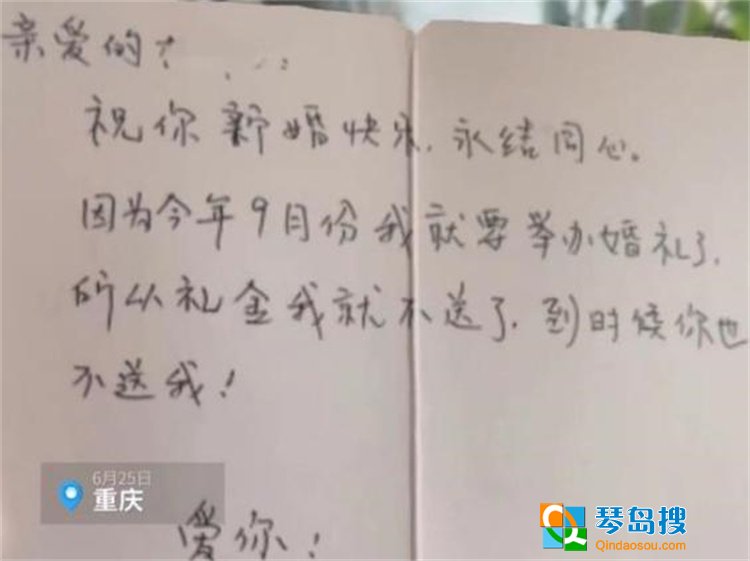 亲爱的:
祝你新婚快乐,永结同心。
因为今年9月份我就要举办婚礼了,
所以礼金我就不送了,到时候你也
不送我!
6月25日
重庆
爱你!
琴岛搜
Qindaosou.com